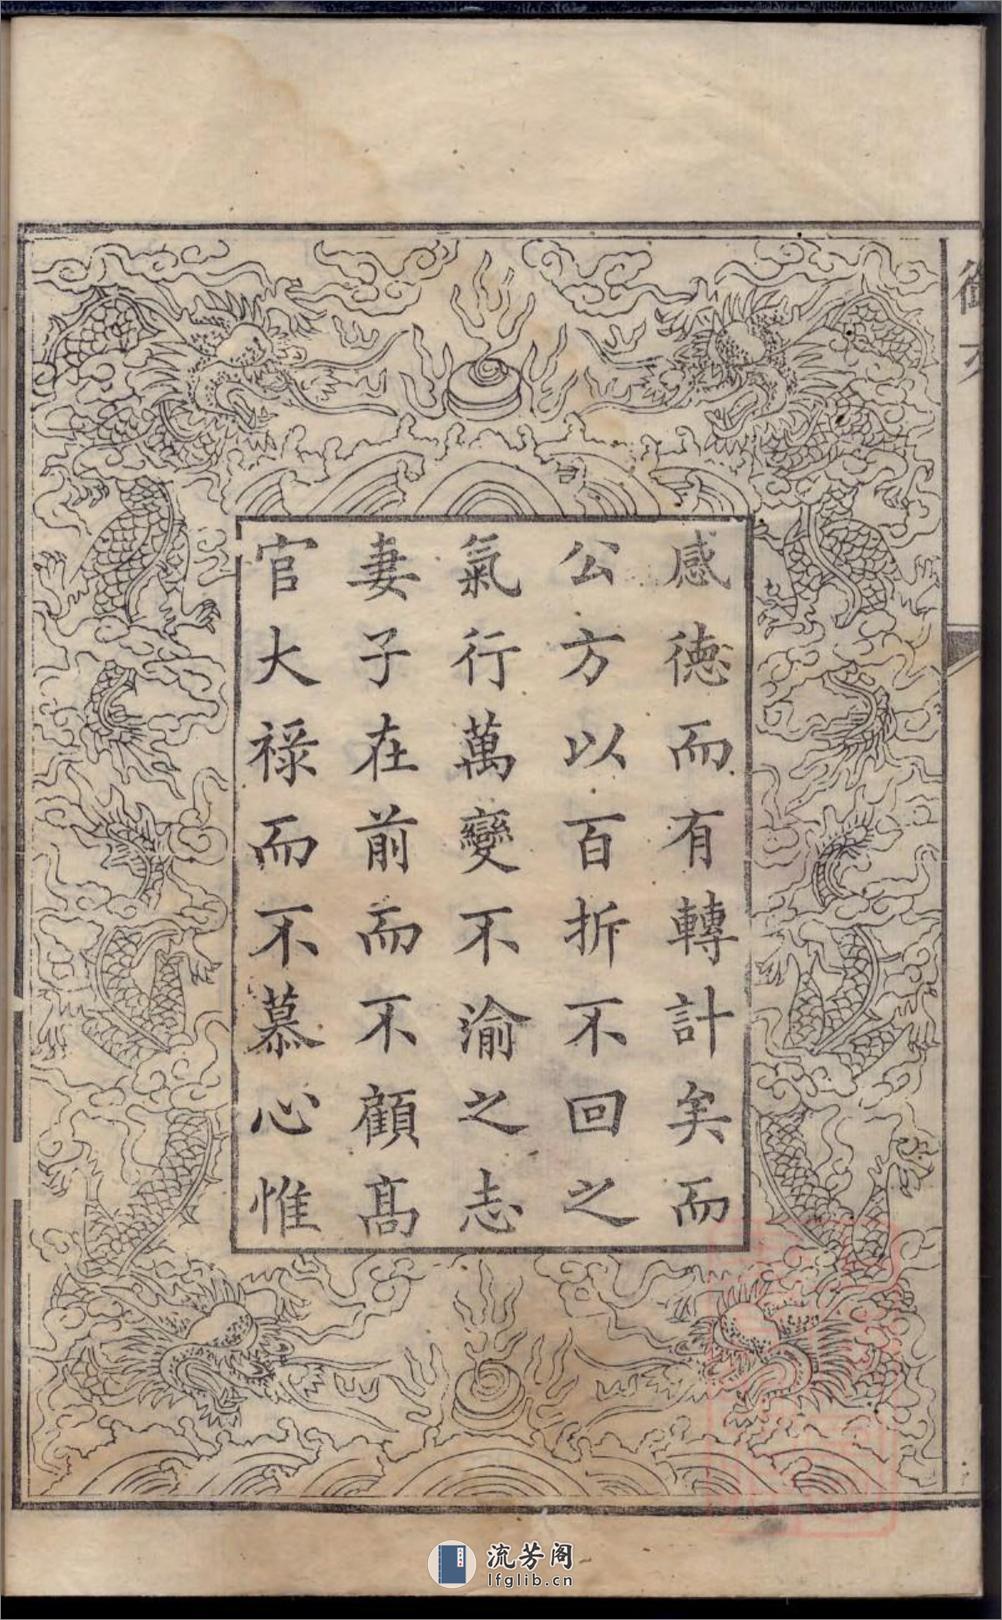 感德而有轉計矣而
公方以百折不回之
氣行萬變不渝之志
妻子在前而不顧髙
官大禄而不慕心惟
流芳阁
lfglib.cn